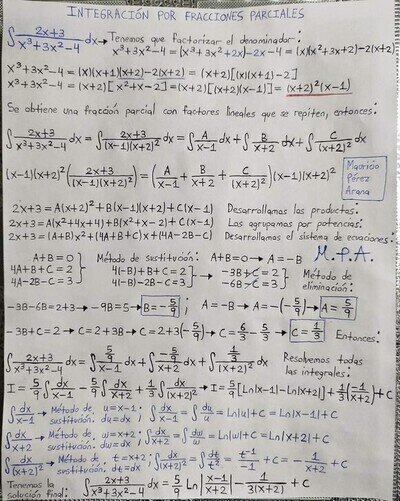 INTEGRACIÓN POR FRACCIONES PARCIALES
∫ (2x+3)/(x³+3x²-4) dx → Tenemos que factorizar el denominador:
x³+3x²-4 = (x³+3x²+2x)-2x-4 = (x)(x²+3x+2)-2(x+2)
x³+3x²-4 = (x)(x+1)(x+2)-2(x+2) = (x+2)[(x)(x+1)-2]
x³+3x²-4 = (x+2)[x²+x-2] = (x+2)[(x+2)(x-1)] = (x+2)²(x-1)
Se obtiene una fracción parcial con factores lineales que se repiten, entonces:
∫ (2x+3)/(x³+3x²-4) dx = ∫ (2x+3)/((x-1)(x+2)²) dx = ∫ A/(x-1) dx + ∫ B/(x+2) dx + ∫ C/(x+2)² dx
(x-1)(x+2)² ((2x+3)/((x-1)(x+2)²)) = (A/(x-1) + B/(x+2) + C/(x+2)²)(x-1)(x+2)²
Mauricio
Pérez
Arana
2x+3 = A(x+2)²+B(x-1)(x+2)+C(x-1) Desarrollamos los productos:
2x+3 = A(x²+4x+4)+B(x²+x-2)+C(x-1) Los agrupamos por potencias:
2x+3 = (A+B)x²+(4A+B+C)x+(4A-2B-C) Desarrollamos el sistema de ecuaciones:
A+B=0 } Método de sustitución: A+B=0 → A=-B M.P.A.
4A+B+C=2 } 4(-B)+B+C=2 } → -3B+C=2 } Método de
4A-2B-C=3 } 4(-B)-2B-C=3 } → -6B-C=3 } eliminación:
-3B-6B=2+3 → -9B=5 → B=-5/9 ; A=-B → A=-(-5/9) → A=5/9
-3B+C=2 → C=2+3B → C=2+3(-5/9) → C=6/3-5/3 → C=1/3 Entonces:
∫ (2x+3)/(x³+3x²-4) dx = ∫ (5/9)/(x-1) dx + ∫ (-5/9)/(x+2) dx + ∫ (1/3)/(x+2)² dx Resolvemos todas las integrales:
I = 5/9 ∫ dx/(x-1) - 5/9 ∫ dx/(x+2) + 1/3 ∫ dx/(x+2)² → I = 5/9 [Ln|x-1|-Ln|x+2|] + 1/3 (-1/(x+2)) + C
∫ dx/(x-1) → Método de sustitución. u=x-1. du=dx; ∫ dx/(x-1) = ∫ du/u = Ln|u|+C = Ln|x-1|+C
∫ dx/(x+2) → Método de sustitución. w=x+2. dw=dx; ∫ dx/(x+2) = ∫ dw/w = Ln|w|+C = Ln|x+2|+C
∫ dx/(x+2)² → Método de sustitución. t=x+2. dt=dx; ∫ dx/(x+2)² = ∫ dt/t² = t⁻¹/-1 + C = -1/(x+2) + C
Tenemos la solución final: ∫ (2x+3)/(x³+3x²-4) dx = 5/9 Ln|(x-1)/(x+2)| - 1/(3(x+2)) + C